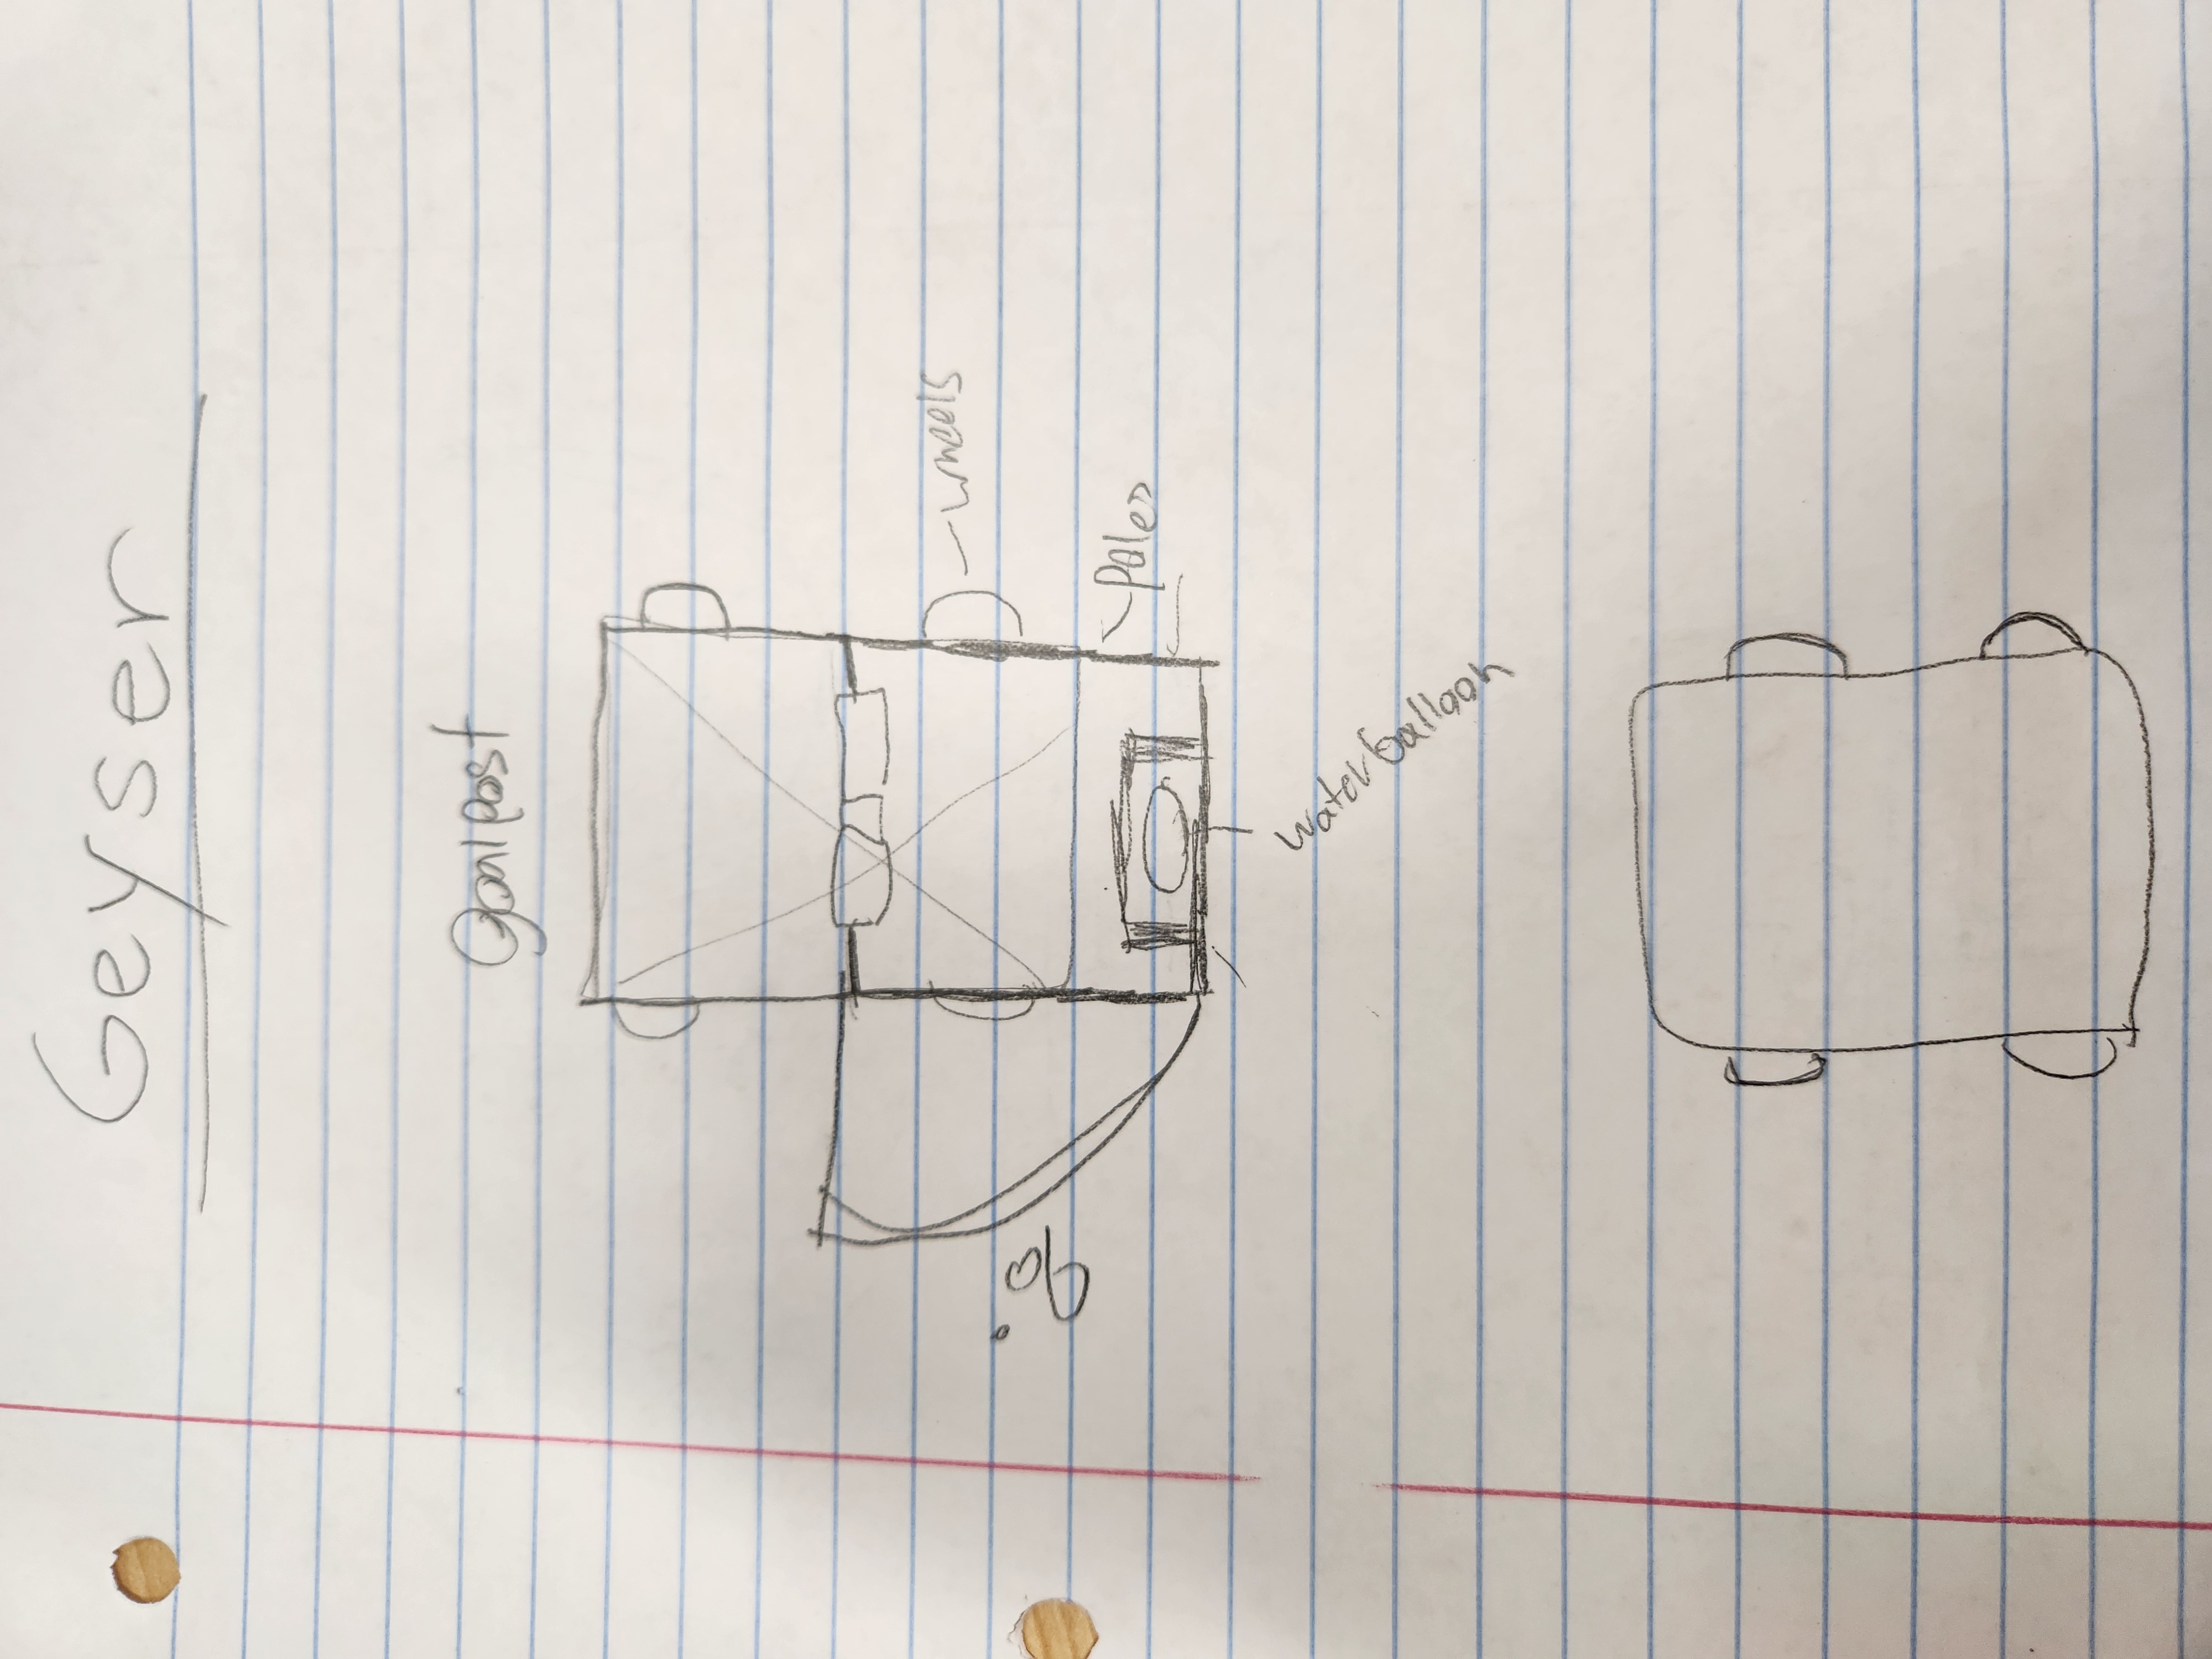 Geyser
Goalpost
wheels
90°
Poles
water balloon